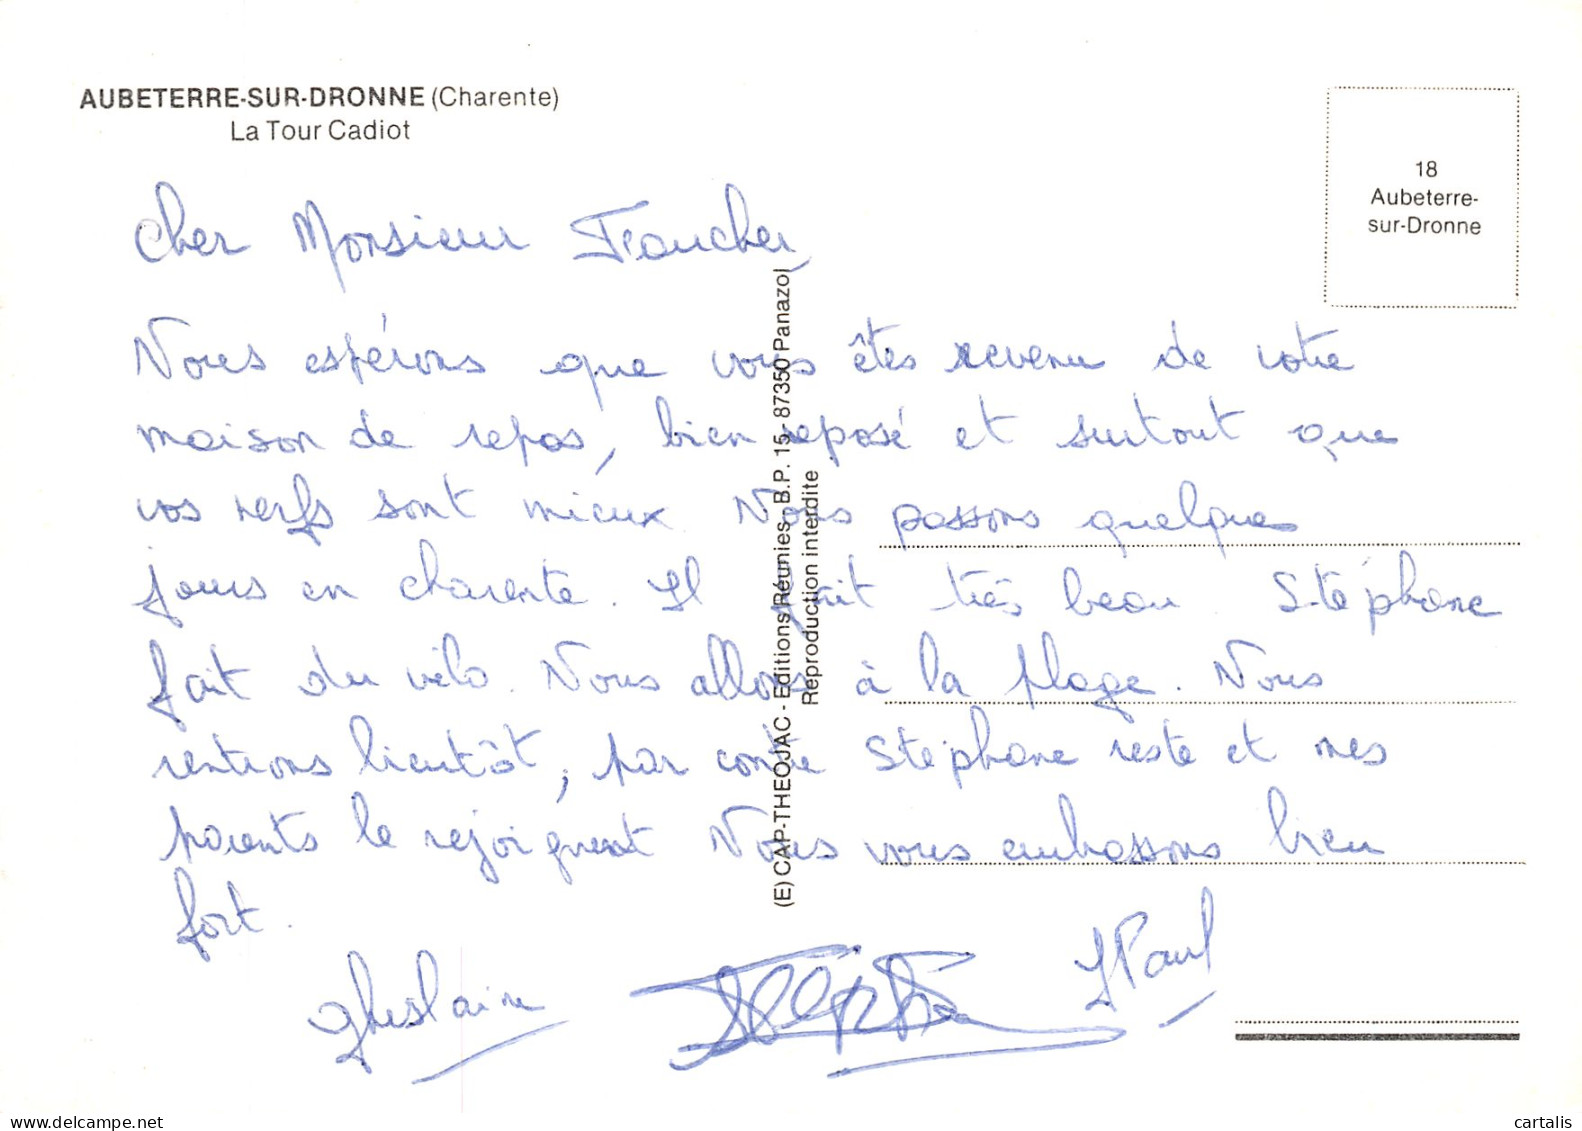 AUBETERRE-SUR-DRONNE (Charente)
La Tour Cadiot
18
Aubeterre-
sur-Dronne
Cher Monsieur Faucher,
Nous espérons que vous êtes revenu de votre
maison de repos, bien reposé et surtout que
vos nerfs sont mieux. Nous passons quelques
jours en charente. Il fait très beau. Stéphane
fait du vélo. Nous allons à la plage. Nous
rentrons bientôt, par contre Stéphane reste et mes
parents le rejoignent Nous vous embrassons bien
fort.
Ghislaine Stéphane JPaul
(E) CAP-THEOJAC - Editions Réunies - B.P. 15 - 87350 Panazol
Reproduction interdite
cartalis
www.delcampe.net